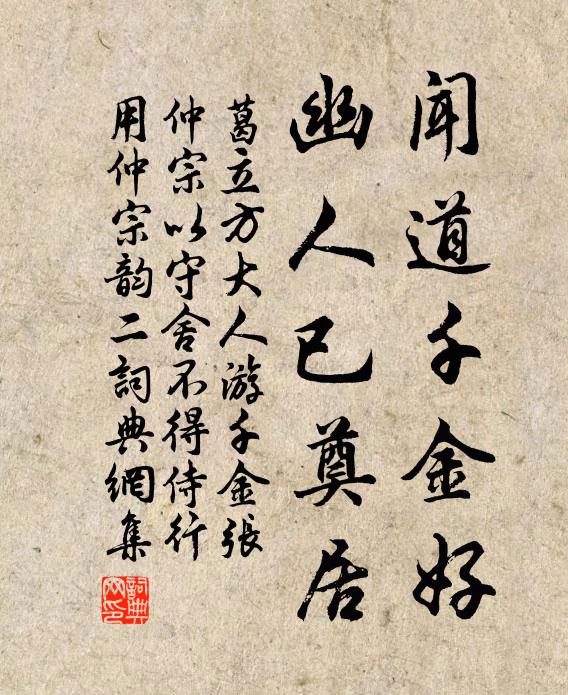 闻道千金好
幽人已奠居
葛立方大人游千金張
仲宗以守舍不得侍行
用仲宗韵二詞典網集
詞典網印